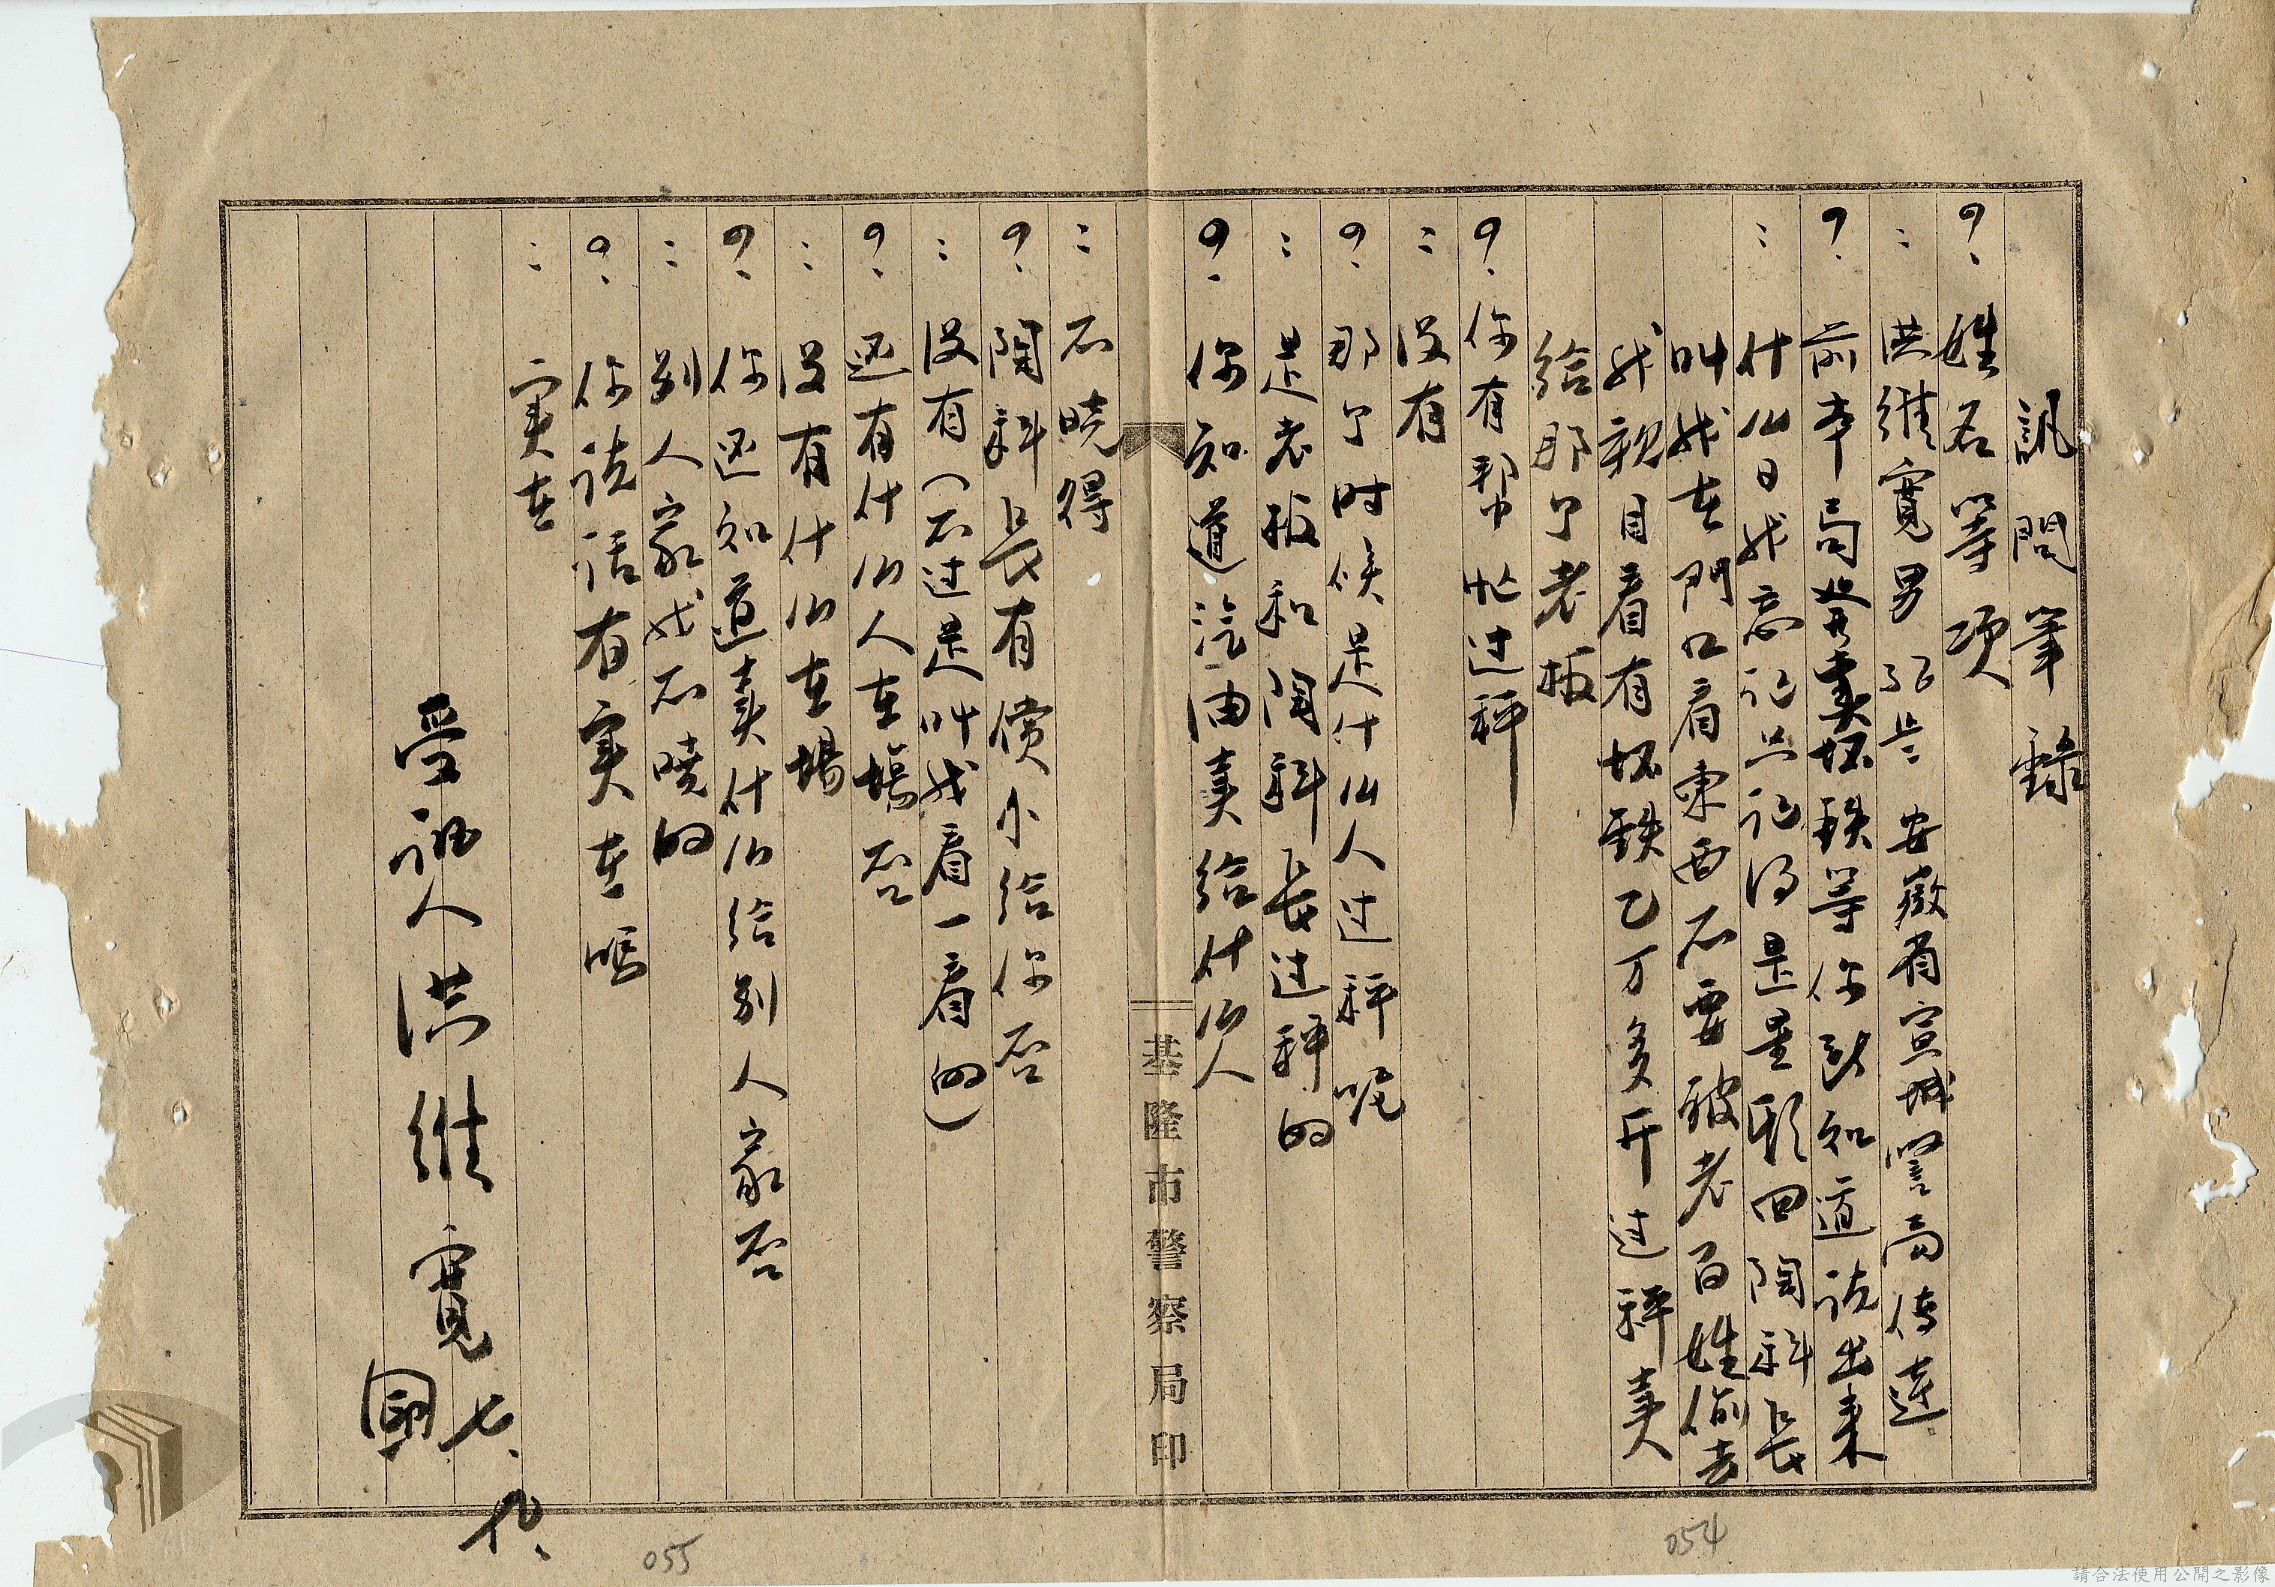 訊問筆錄
？姓名等項
：洪維寬 男 安徽省宣城 警局傳達
？前本局娤賣壞鉄等你到知道說出來
：什么日我忘记只记得是星期四陶科長
叫我在門口看東西不要被老百姓偷去
我親目看有壞鉄乙万多斤过秤賣
給那个老板
？你有帮忙过秤
：没有
？那个时候是什么人过秤呢
：是老板和陶科長过秤的
？你知道汽油賣給什么人
基隆市警察局印
：不曉得
？陶科長有償小給你否
：没有（不过是叫我看一看的）
？还有什么人在場否
：没有什么在場
？你还知道賣什么給別人家否
：別人家我不曉的
？你说话有实在嗎
：实在
受訊人洪維寬
七、
054
055
請合法使用公開之影像